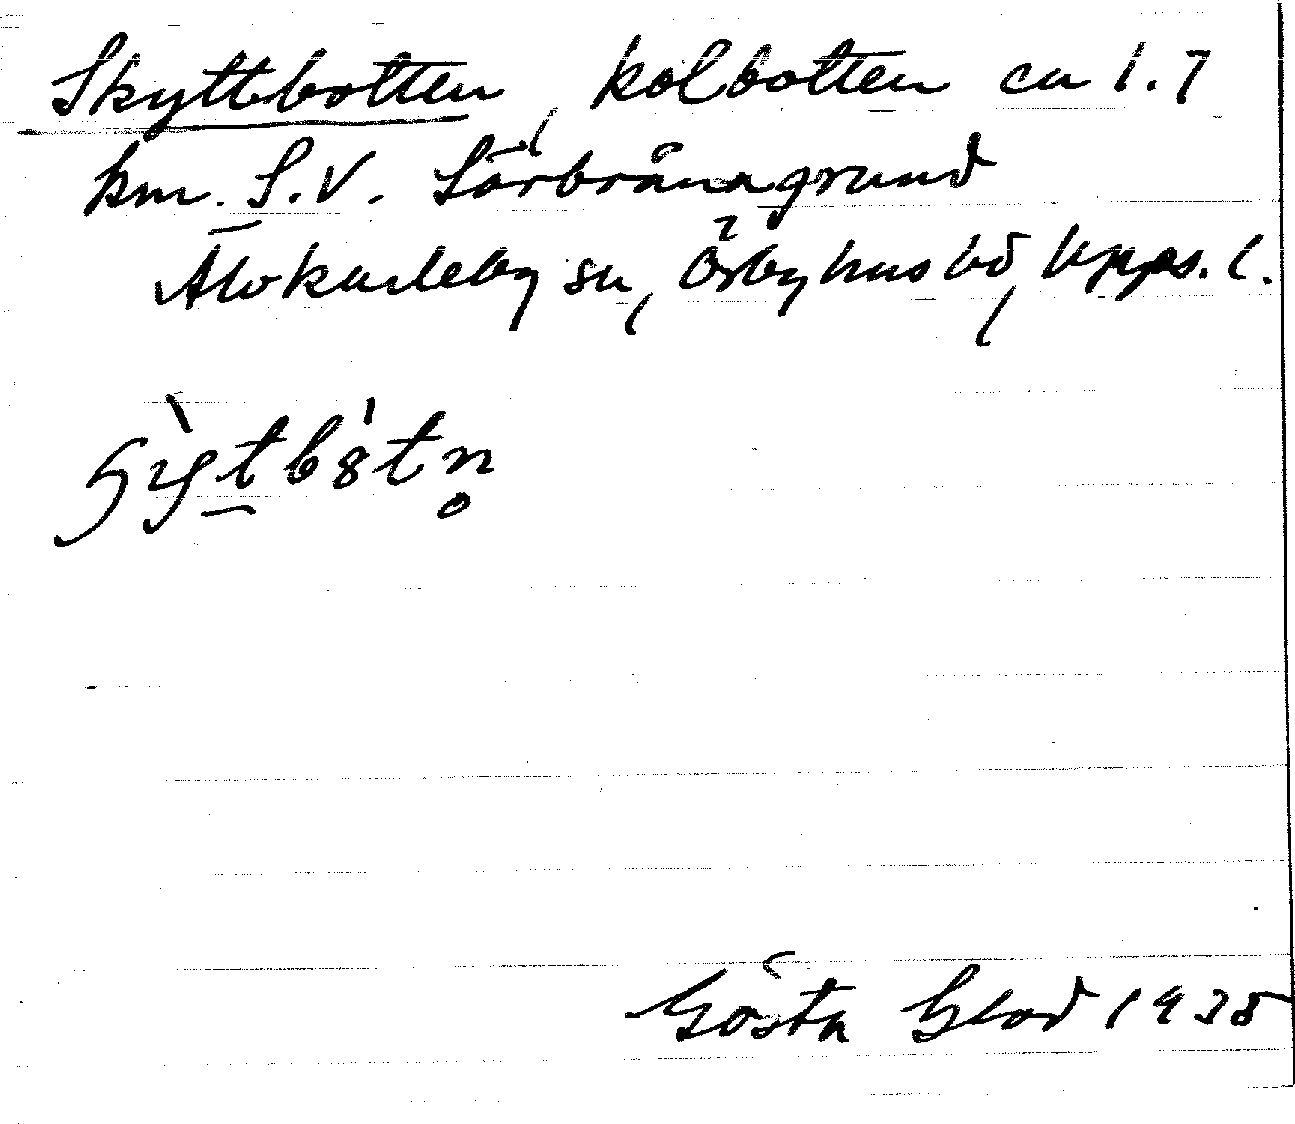 Skyttbotten, kolbotten ca 1.7
km. S.V. Sörbrånagrund
Älvkarleby sn, Örbyhus hd, Upps. l.
Gösta Blod 1938